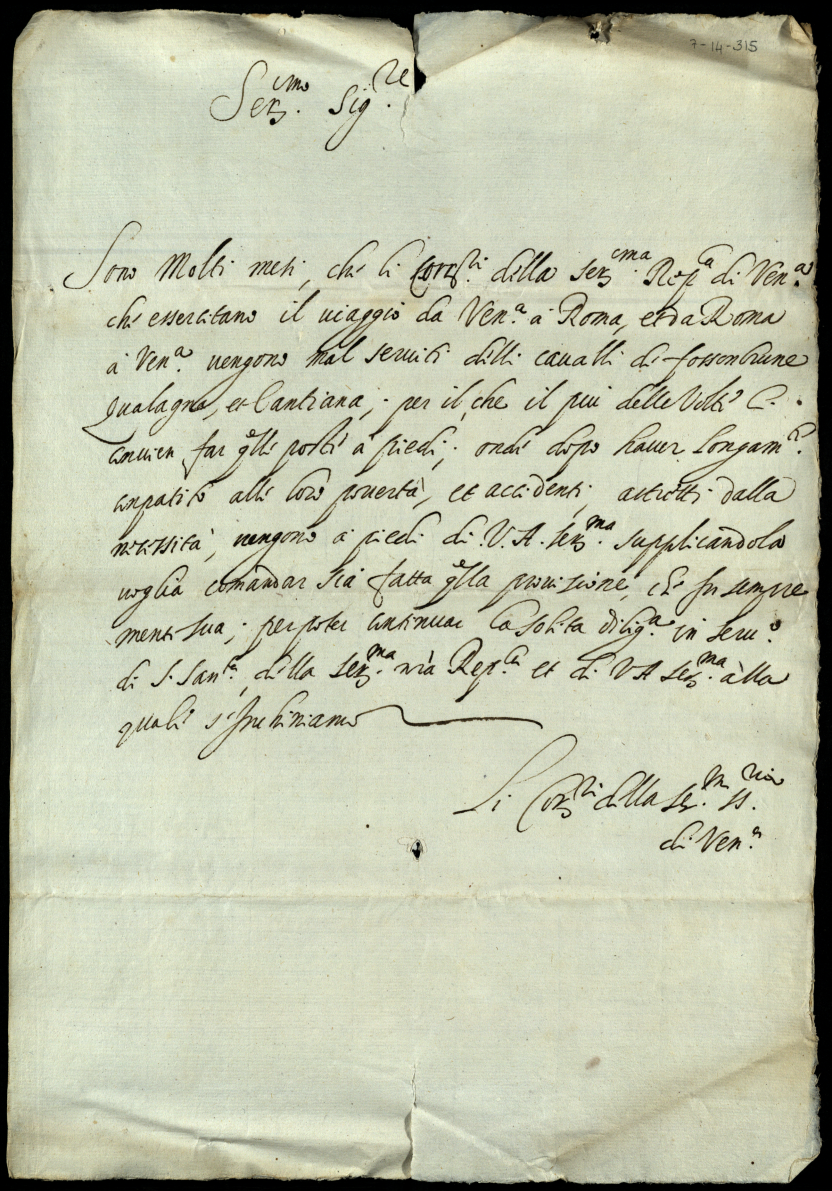 7-14-315
Ser.mo Sig.re
Sono Molti mesi, che li Corr.ri della Ser.ma Rep.ca di Ven.a
che essercitano il viaggio da Ven.a à Roma, et da Roma
à Ven.a vengono mal serviti delli cavalli di fossombrune
qualagna, et Cantiana, per il che il più delle Volte
convien far q.lle poste à piedi; onde dopo haver Longam.te
conpatito alle loro povertà, et accidenti, astretti dalla
necessità, vengono à piedi di V. A. Ser.ma supplicandola
voglia comandar sia fatta q.lla provisione, che fu sempre
mente sua, per poter continuar la solita dilig.a in serv.o
di S. San.tà, della Ser.ma nrã Rep.ca et di V A Ser.ma alla
quale s'Inchiniamo
Li Corr.ri della Ser.ma Sig.ria
di Ven.a